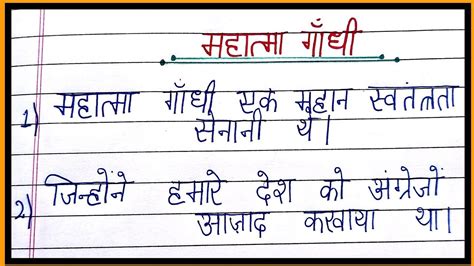 महात्मा गाँधी
1) महात्मा गाँधी एक महान स्वतंत्रता
सेनानी थे।
2) जिन्होंने हमारे देश को अंग्रेजों
आज़ाद करवाया था।